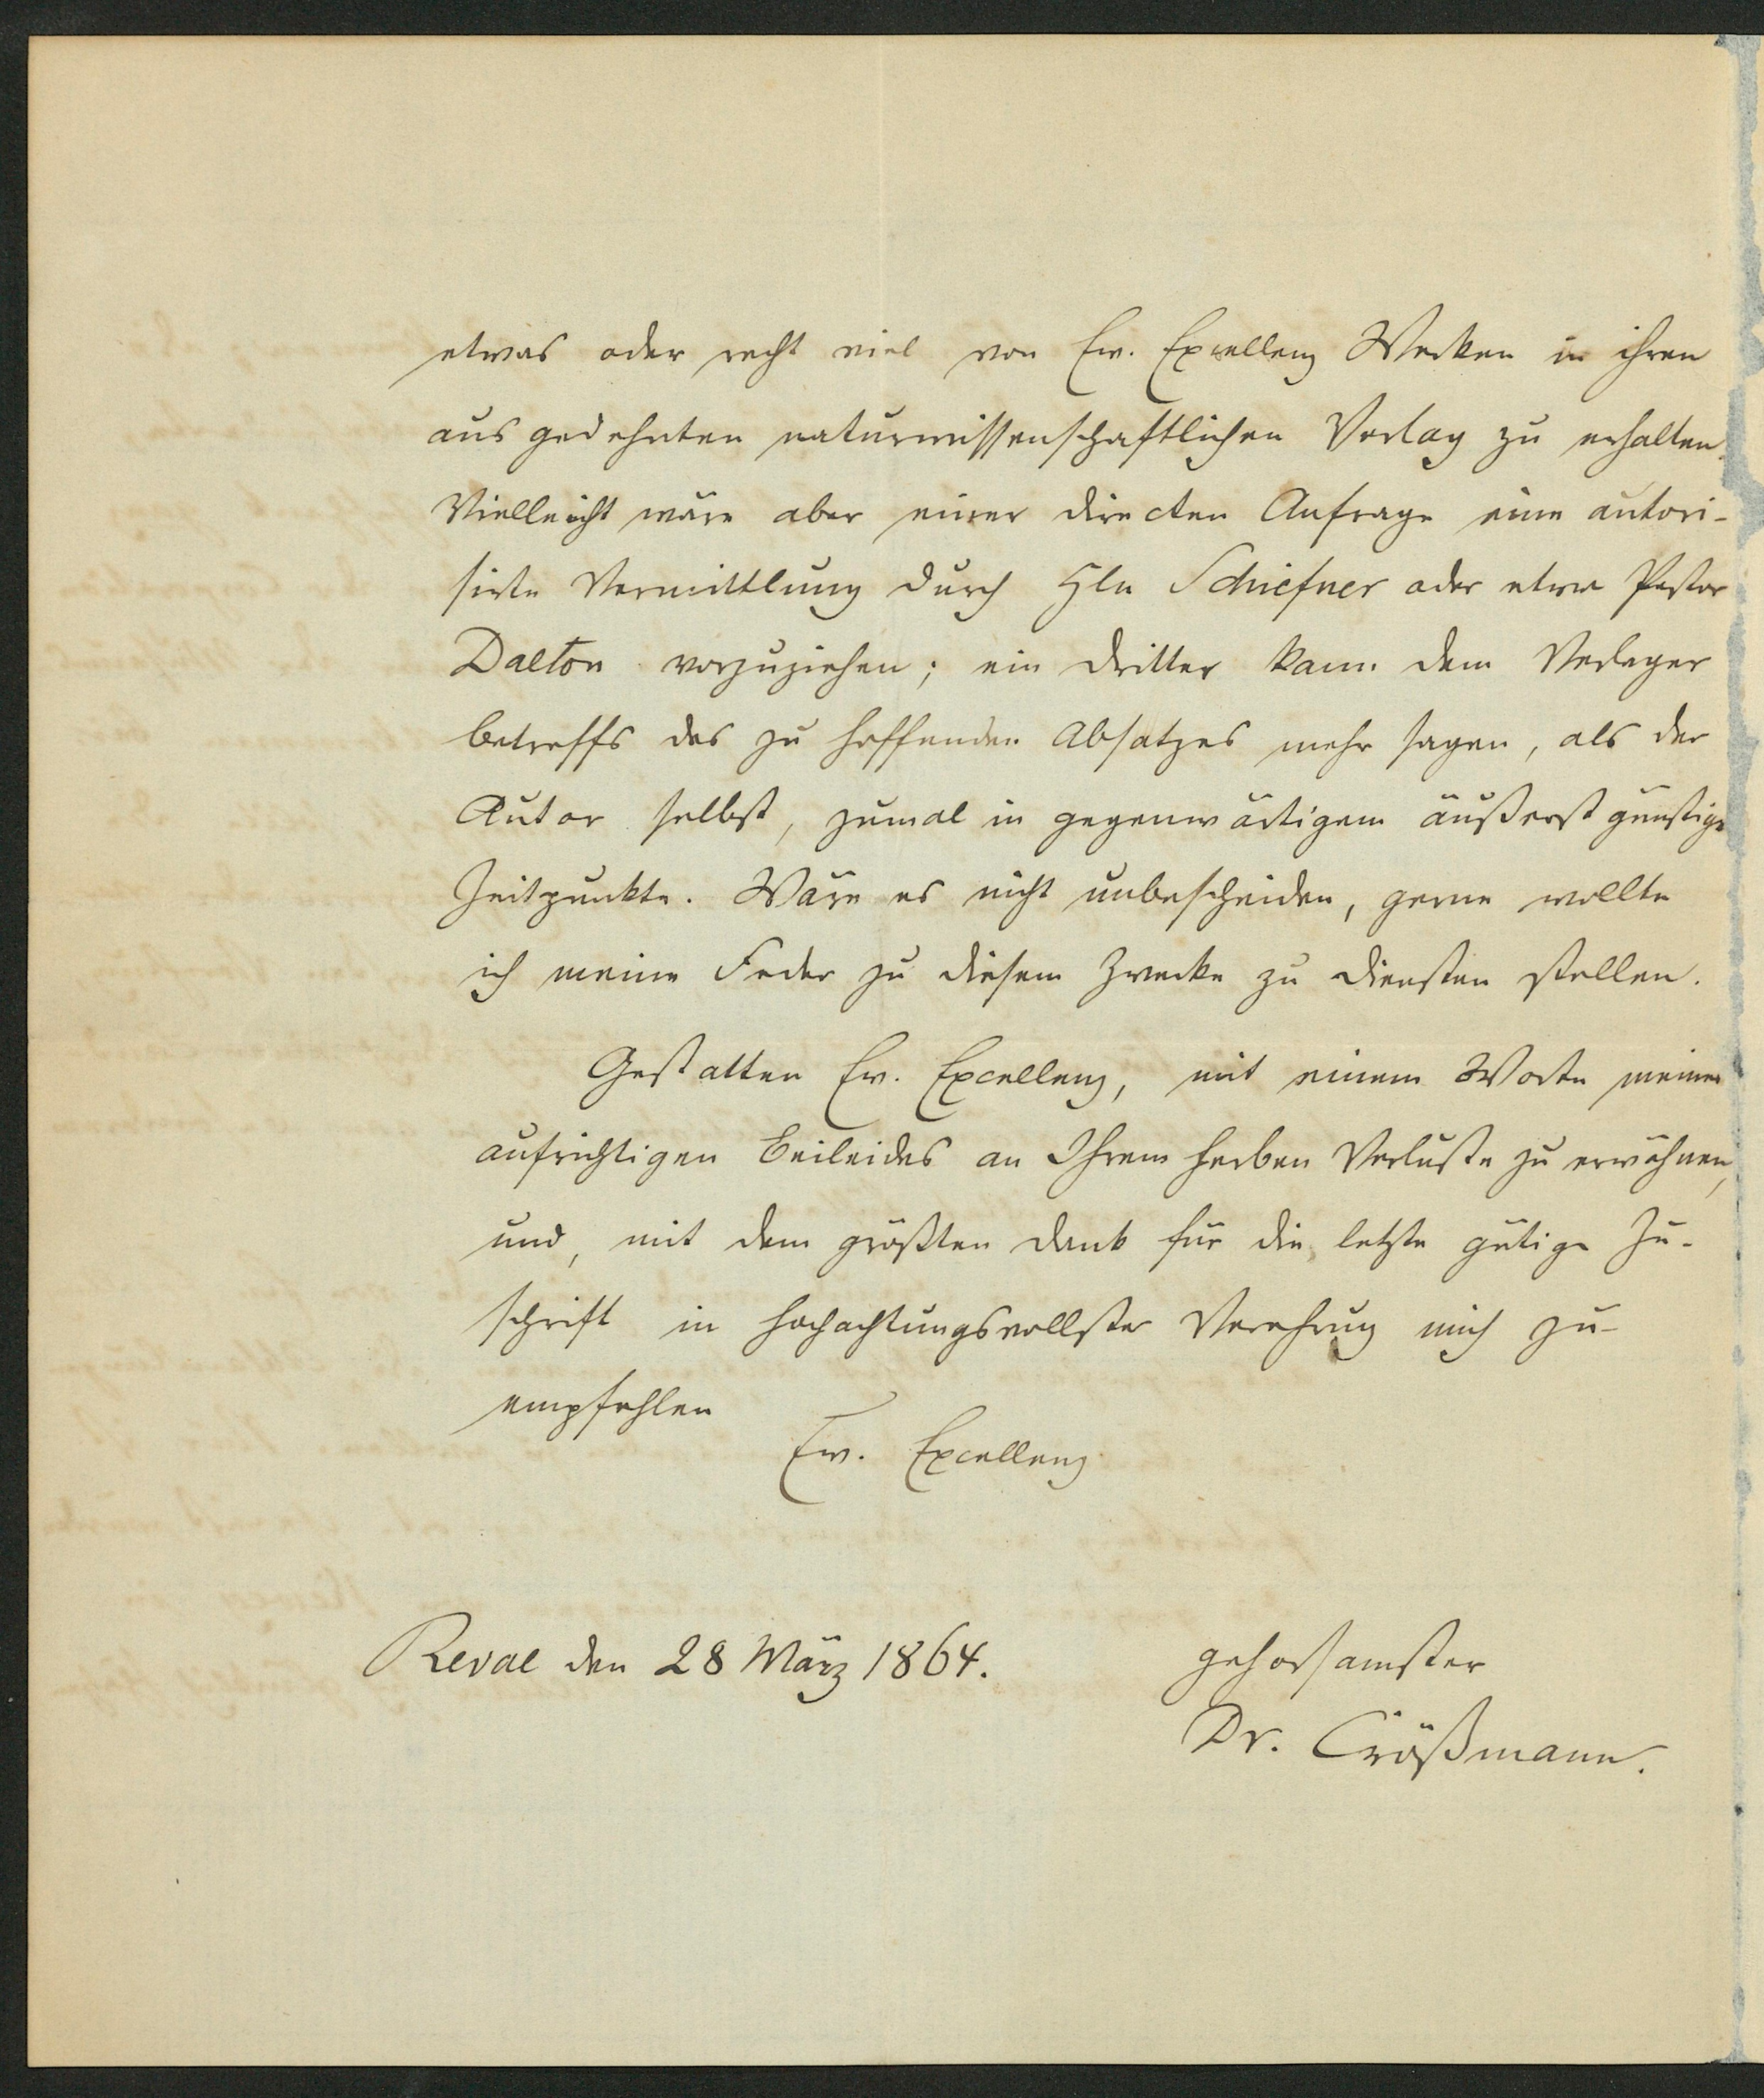 etwas oder recht viel von Ew. Excellenz Werken in ihren
ausgedehnten naturwissenschaftlichen Verlag zu erhalten.
Vielleicht wäre aber einer directen Anfrage eine autori-
sirte Vermittlung durch Schiefner oder etwa Pastor
Dalton vorzuziehen; ein dritter kann dem Verleger
betreffs des zu hoffenden Absatzes mehr sagen, als der
Autor selbst, zumal in gegenwärtigem äußerst günstige
Zeitpunkte. Wäre es nicht unbescheiden, gerne wollte
ich meine Feder zu diesem Zwecke zu Diensten stellen.
Gestatten Ew. Excellenz, mit einem Worte meines
aufrichtigen Beileides an Ihrem herben Verluste zu erwähnen,
und, mit dem größten Dank für die letzte gütige Zu-
schrift in hochachtungsvollster Verehrung mich zu-
empfehlen
Ew. Excellenz
Reval den 28 März 1864.
gehorsamster
Dr. Crößmann.